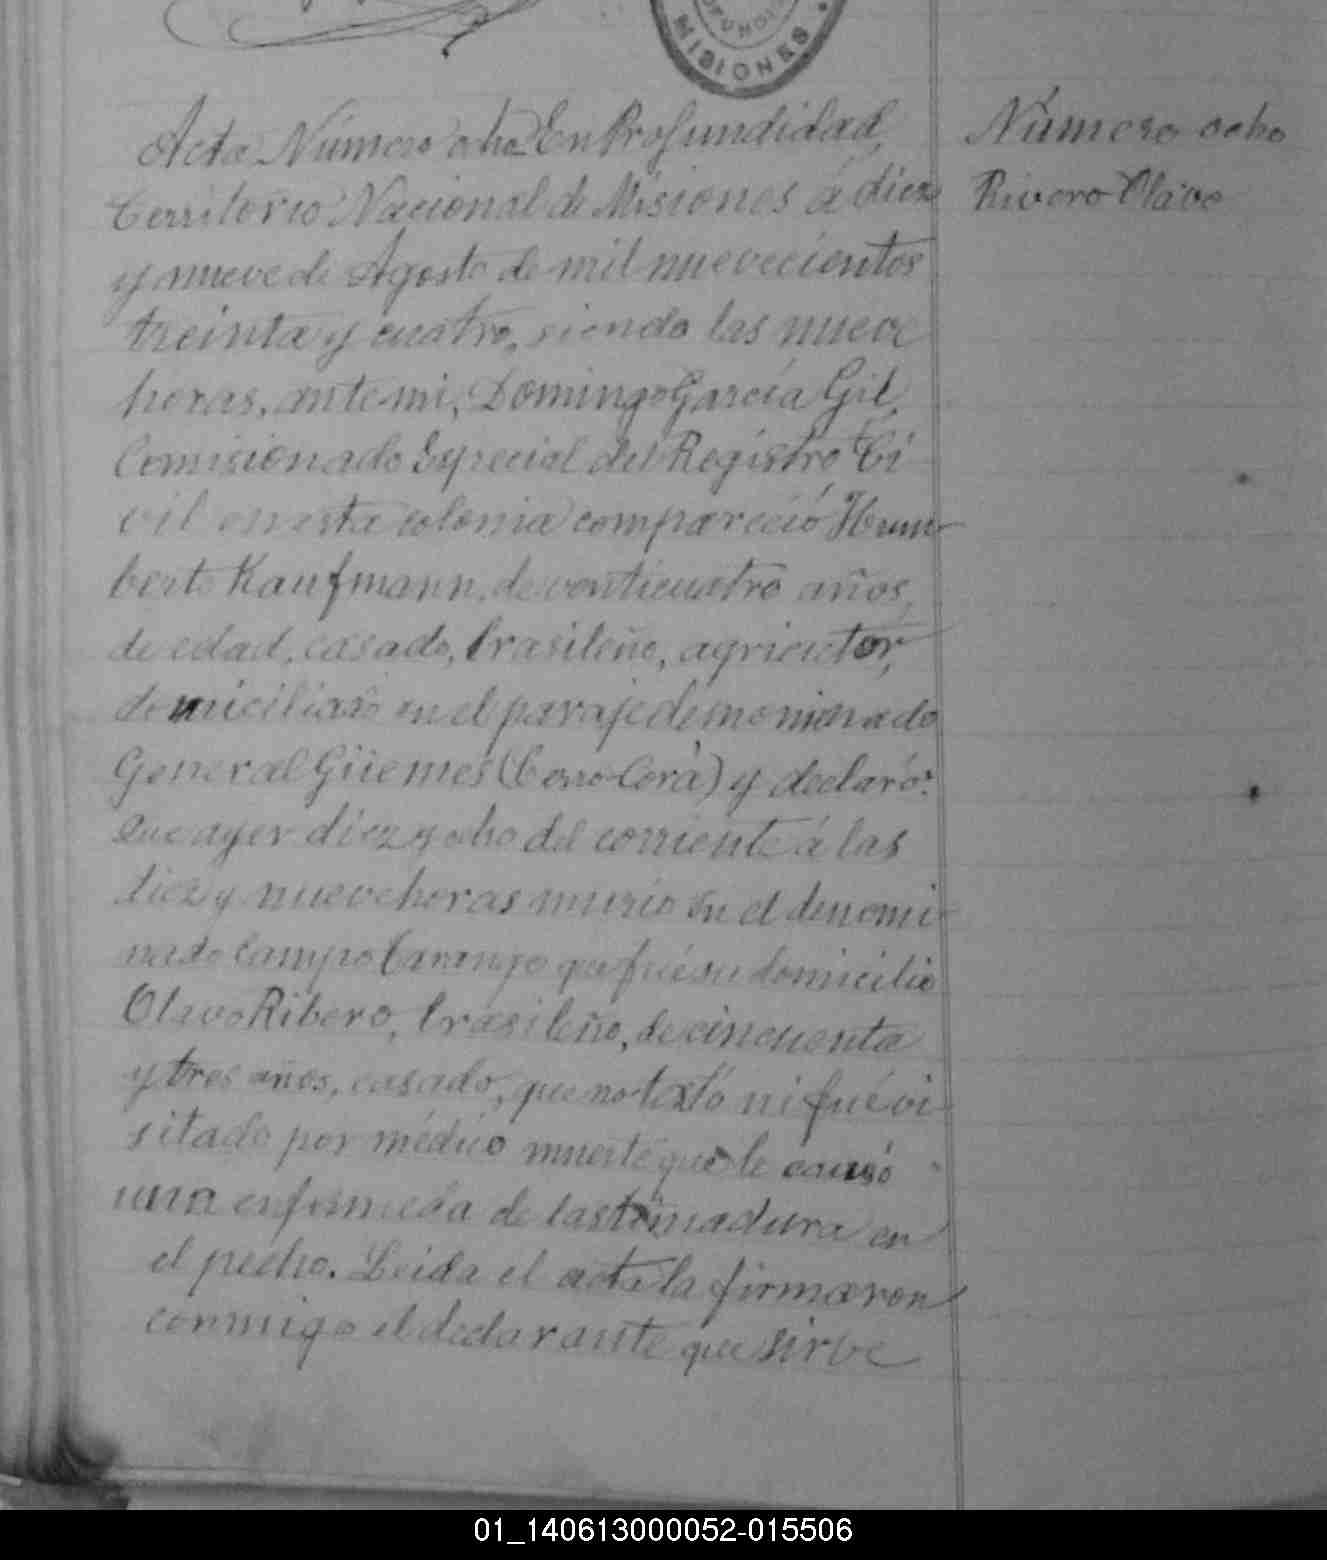 PROFUNDIDAD
MISIONES
Acta Número ocho En Profundidad,
Territorio Nacional de Misiones á diez
y nueve de Agosto de mil nuevecientos
treinta y cuatro, siendo las nueve
horas, ante mi, Domingo García Gil,
Comisionado Especial del Registro Ci
vil en esta colonia compareció Hum-
berto Kaufmann, de venticuatro años,
de edad, casado, brasileño, agricultor,
domiciliado en el paraje demoninado
General Güemes (Cerro Corá) y declaró:
Que ayer diez y ocho del corriente á las
diez y nueve horas murió en el denomi-
nado Campo que fué su domicilio
Olavo Ribero, brasileño, de cincuenta
y tres años, casado, que no textó ni fué vi-
sitado por médico muerte que le causó
una enfermeda de lastimadura en
el pecho. Leida el acta la firmaron
conmigo el declarante que sirve
Número ocho
Rivero Olavo
01_140613000052-015506